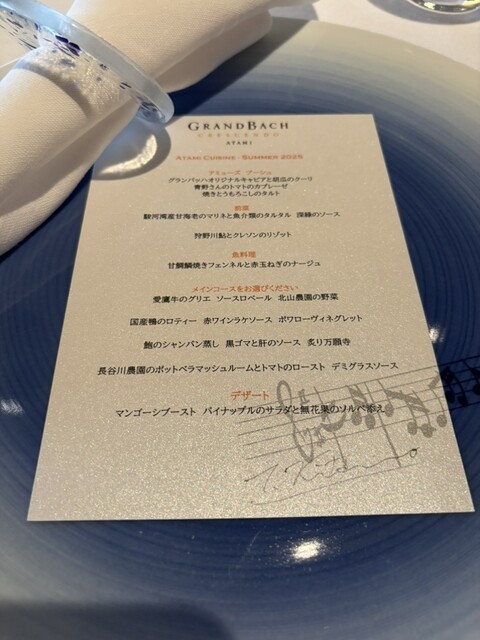 GRANDBACH
CRESCENDO
ATAMI
ATAMI CUISINE - SUMMER 2025
アミューズ ブーシュ
グランバッハオリジナルキャビアと胡瓜のクーリ
青野さんのトマトのカプレーゼ
焼きとうもろこしのタルト
前菜
駿河湾産甘海老のマリネと魚介類のタルタル 深緑のソース
狩野川鮎とクレソンのリゾット
魚料理
甘鯛鱗焼きフェンネルと赤玉ねぎのナージュ
メインコースをお選びください
愛鷹牛のグリエ ソースロベール 北山農園の野菜
国産鴨のロティー 赤ワインラケソース ポワローヴィネグレット
鮑のシャンパン蒸し 黒ゴマと肝のソース 炙り万願寺
長谷川農園のポットベラマッシュルームとトマトのロースト デミグラスソース
デザート
マンゴーシブースト パイナップルのサラダと無花果のソルベ添え